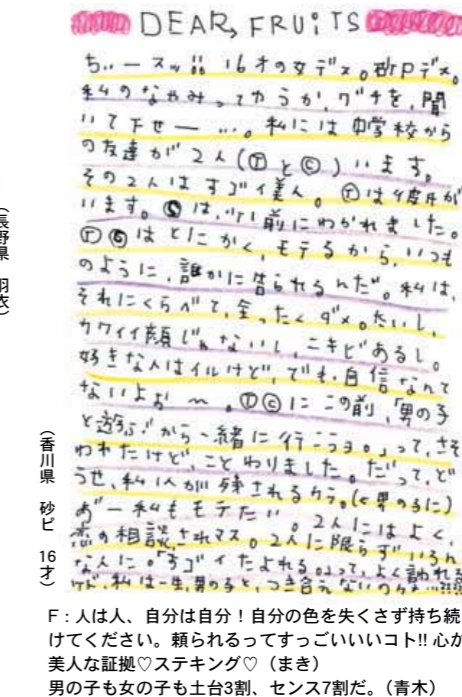 DEAR, FRUiTS
ちぃースッ!! 16才の女デス。砂Pデス。
私のなやみってゆうか、グチを、聞
いて下せー…。私には中学校から
の友達が2人(ⓉとⒸ)います。
その2人はすゴイ美人。Ⓣは彼氏が
います。Ⓒは、少し前にわかれました。
ⓉⒸはとにかく、モテるから、いつも
のように、誰かに告られるんだ。私は、
それにくらべて、全ったくダメ。だいし、
カワイイ顔じゃないし、ニキビあるし。
好きな人はイルけど、でも、自信なんて
ないよぉ〜。ⓉⒸにこの前、「男の子
と遊ぶから一緒に行こうヨ。」って、さそ
われたけど、ことわりました。だって、ど
うせ、私1人が残されるカラ。(<男の子に)
あ゛ー私もモテたい。2人にはよく、
恋の相談されマス。2人に限らずいろん
な人に。「すゴイたよれる。」って、よく言われる
けど、私は一生、男の子と、つき合えないのカナ…
(長野県 羽衣)
(香川県 砂ピ 16才)
F：人は人、自分は自分！自分の色を失くさず持ち続
けてください。頼られるってすっごいいいコト!! 心が
美人な証拠♡ステキング♡（まき）
男の子も女の子も土台3割、センス7割だ。（青木）